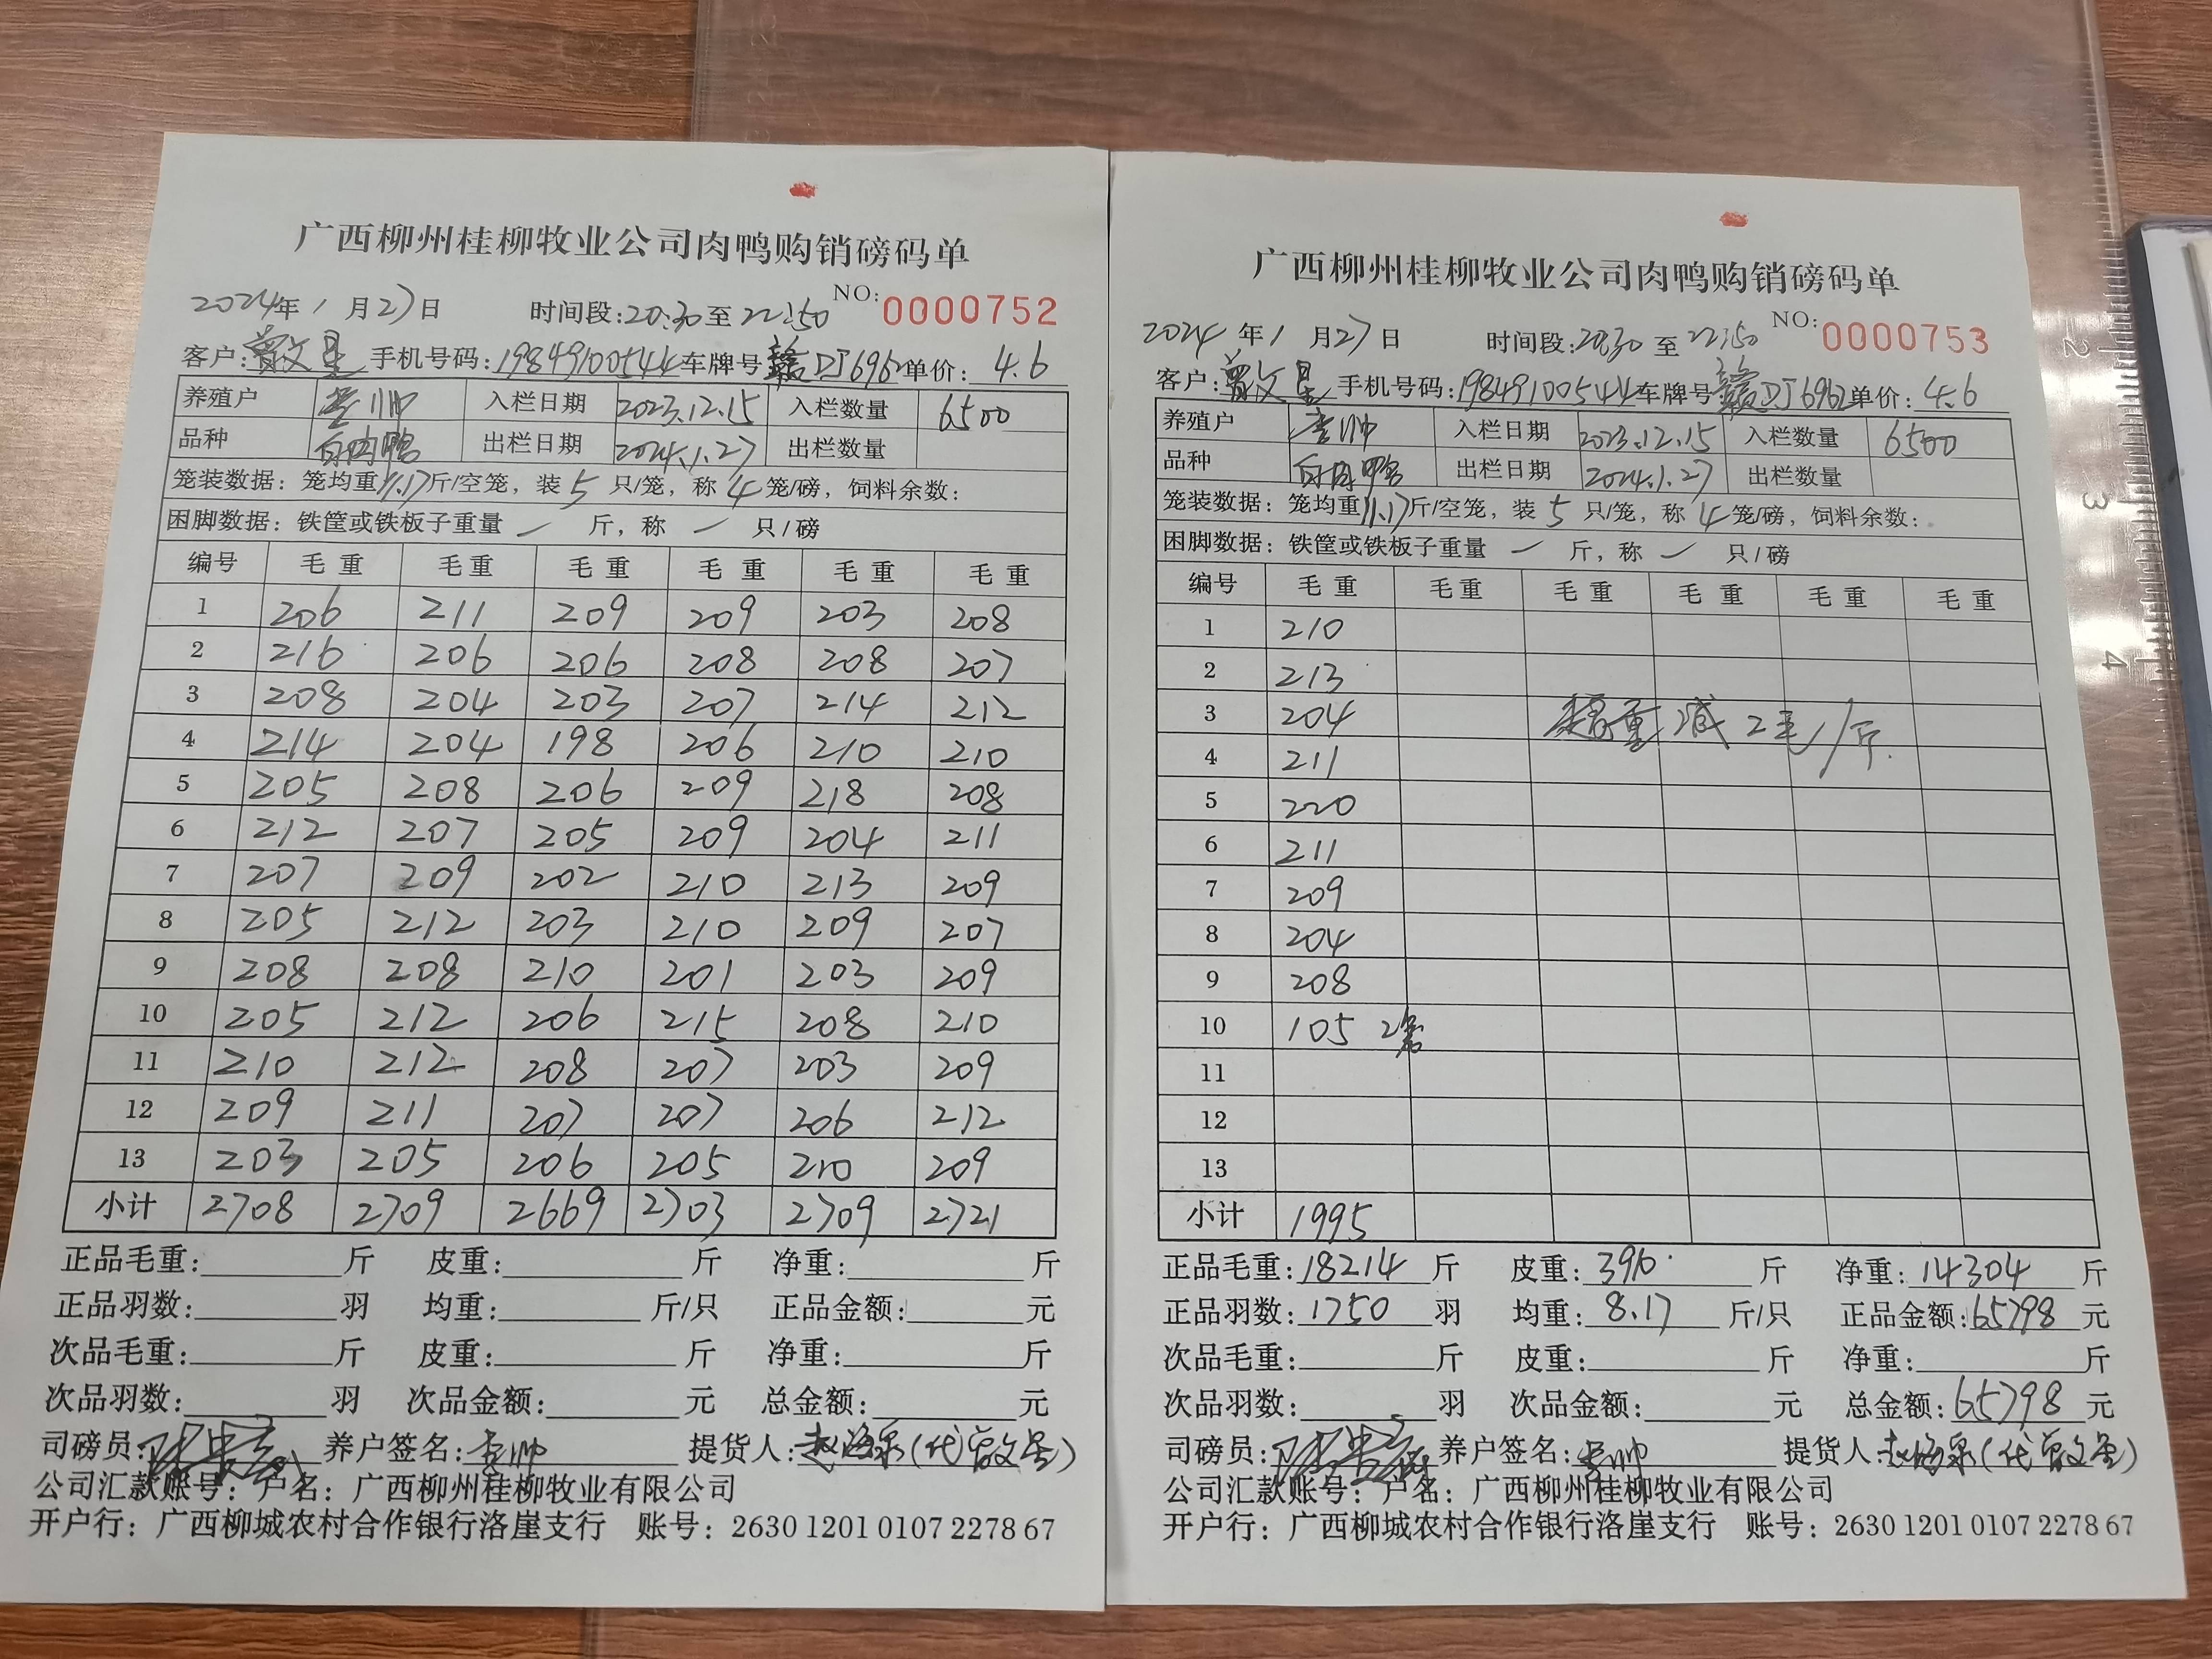 广西柳州桂柳牧业公司肉鸭购销磅码单
2024年1月27日 时间段:20:30至22:50 NO:0000752
客户:曾文星 手机号码:19849100544 车牌号 赣DJ696 单价:4.6
养殖户 李帅 入栏日期 2023.12.15 入栏数量 6500
品种 白肉鸭 出栏日期 2024.1.27 出栏数量
笼装数据: 笼均重11.17斤/空笼, 装5只/笼, 称4笼/磅, 饲料余数:
困脚数据: 铁筐或铁板子重量 — 斤, 称 — 只/磅
编号 毛重 毛重 毛重 毛重 毛重 毛重
1 206 211 209 209 203 208
2 216 206 206 208 208 207
3 208 204 203 207 214 212
4 214 204 198 206 210 210
5 205 208 206 209 218 208
6 212 207 205 209 204 211
7 207 209 202 210 213 209
8 205 212 203 210 209 207
9 208 208 210 201 203 209
10 205 212 206 215 208 210
11 210 212 208 207 203 209
12 209 211 207 207 206 212
13 203 205 206 205 210 209
小计 2708 2709 2669 2703 2709 2721
正品毛重: 斤 皮重: 斤 净重: 斤
正品羽数: 羽 均重: 斤/只 正品金额: 元
次品毛重: 斤 皮重: 斤 净重: 斤
次品羽数: 羽 次品金额: 元 总金额: 元
司磅员: 养户签名:李帅 提货人:赵海泉(代曾文星)
公司汇款账号: 户名: 广西柳州桂柳牧业有限公司
开户行: 广西柳城农村合作银行洛崖支行 账号: 2630 1201 0107 2278 67
广西柳州桂柳牧业公司肉鸭购销磅码单
2024年1月27日 时间段:20:30至22:50 NO:0000753
客户:曾文星 手机号码:19849100544 车牌号 赣DJ6962 单价:4.6
养殖户 李帅 入栏日期 2023.12.15 入栏数量 6500
品种 白肉鸭 出栏日期 2024.1.27 出栏数量
笼装数据: 笼均重11.17斤/空笼, 装5只/笼, 称4笼/磅, 饲料余数:
困脚数据: 铁筐或铁板子重量 — 斤, 称 — 只/磅
编号 毛重 毛重 毛重 毛重 毛重 毛重
1 210
2 213
3 204 超重减2毛/斤.
4 211
5 220
6 211
7 209
8 204
9 208
10 105 2笼
11
12
13
小计 1995
正品毛重:18214斤 皮重:3910斤 净重:14304斤
正品羽数:1750羽 均重:8.17斤/只 正品金额:65798元
次品毛重: 斤 皮重: 斤 净重: 斤
次品羽数: 羽 次品金额: 元 总金额:65798元
司磅员: 养户签名:李帅 提货人:赵海泉(代曾文星)
公司汇款账号: 户名: 广西柳州桂柳牧业有限公司
开户行: 广西柳城农村合作银行洛崖支行 账号: 2630 1201 0107 2278 67
2
3
4